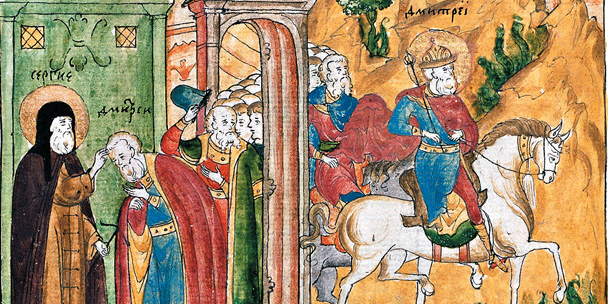 СЕРГИЕ
ДМИТРЕИ
ДМИТРЕІ